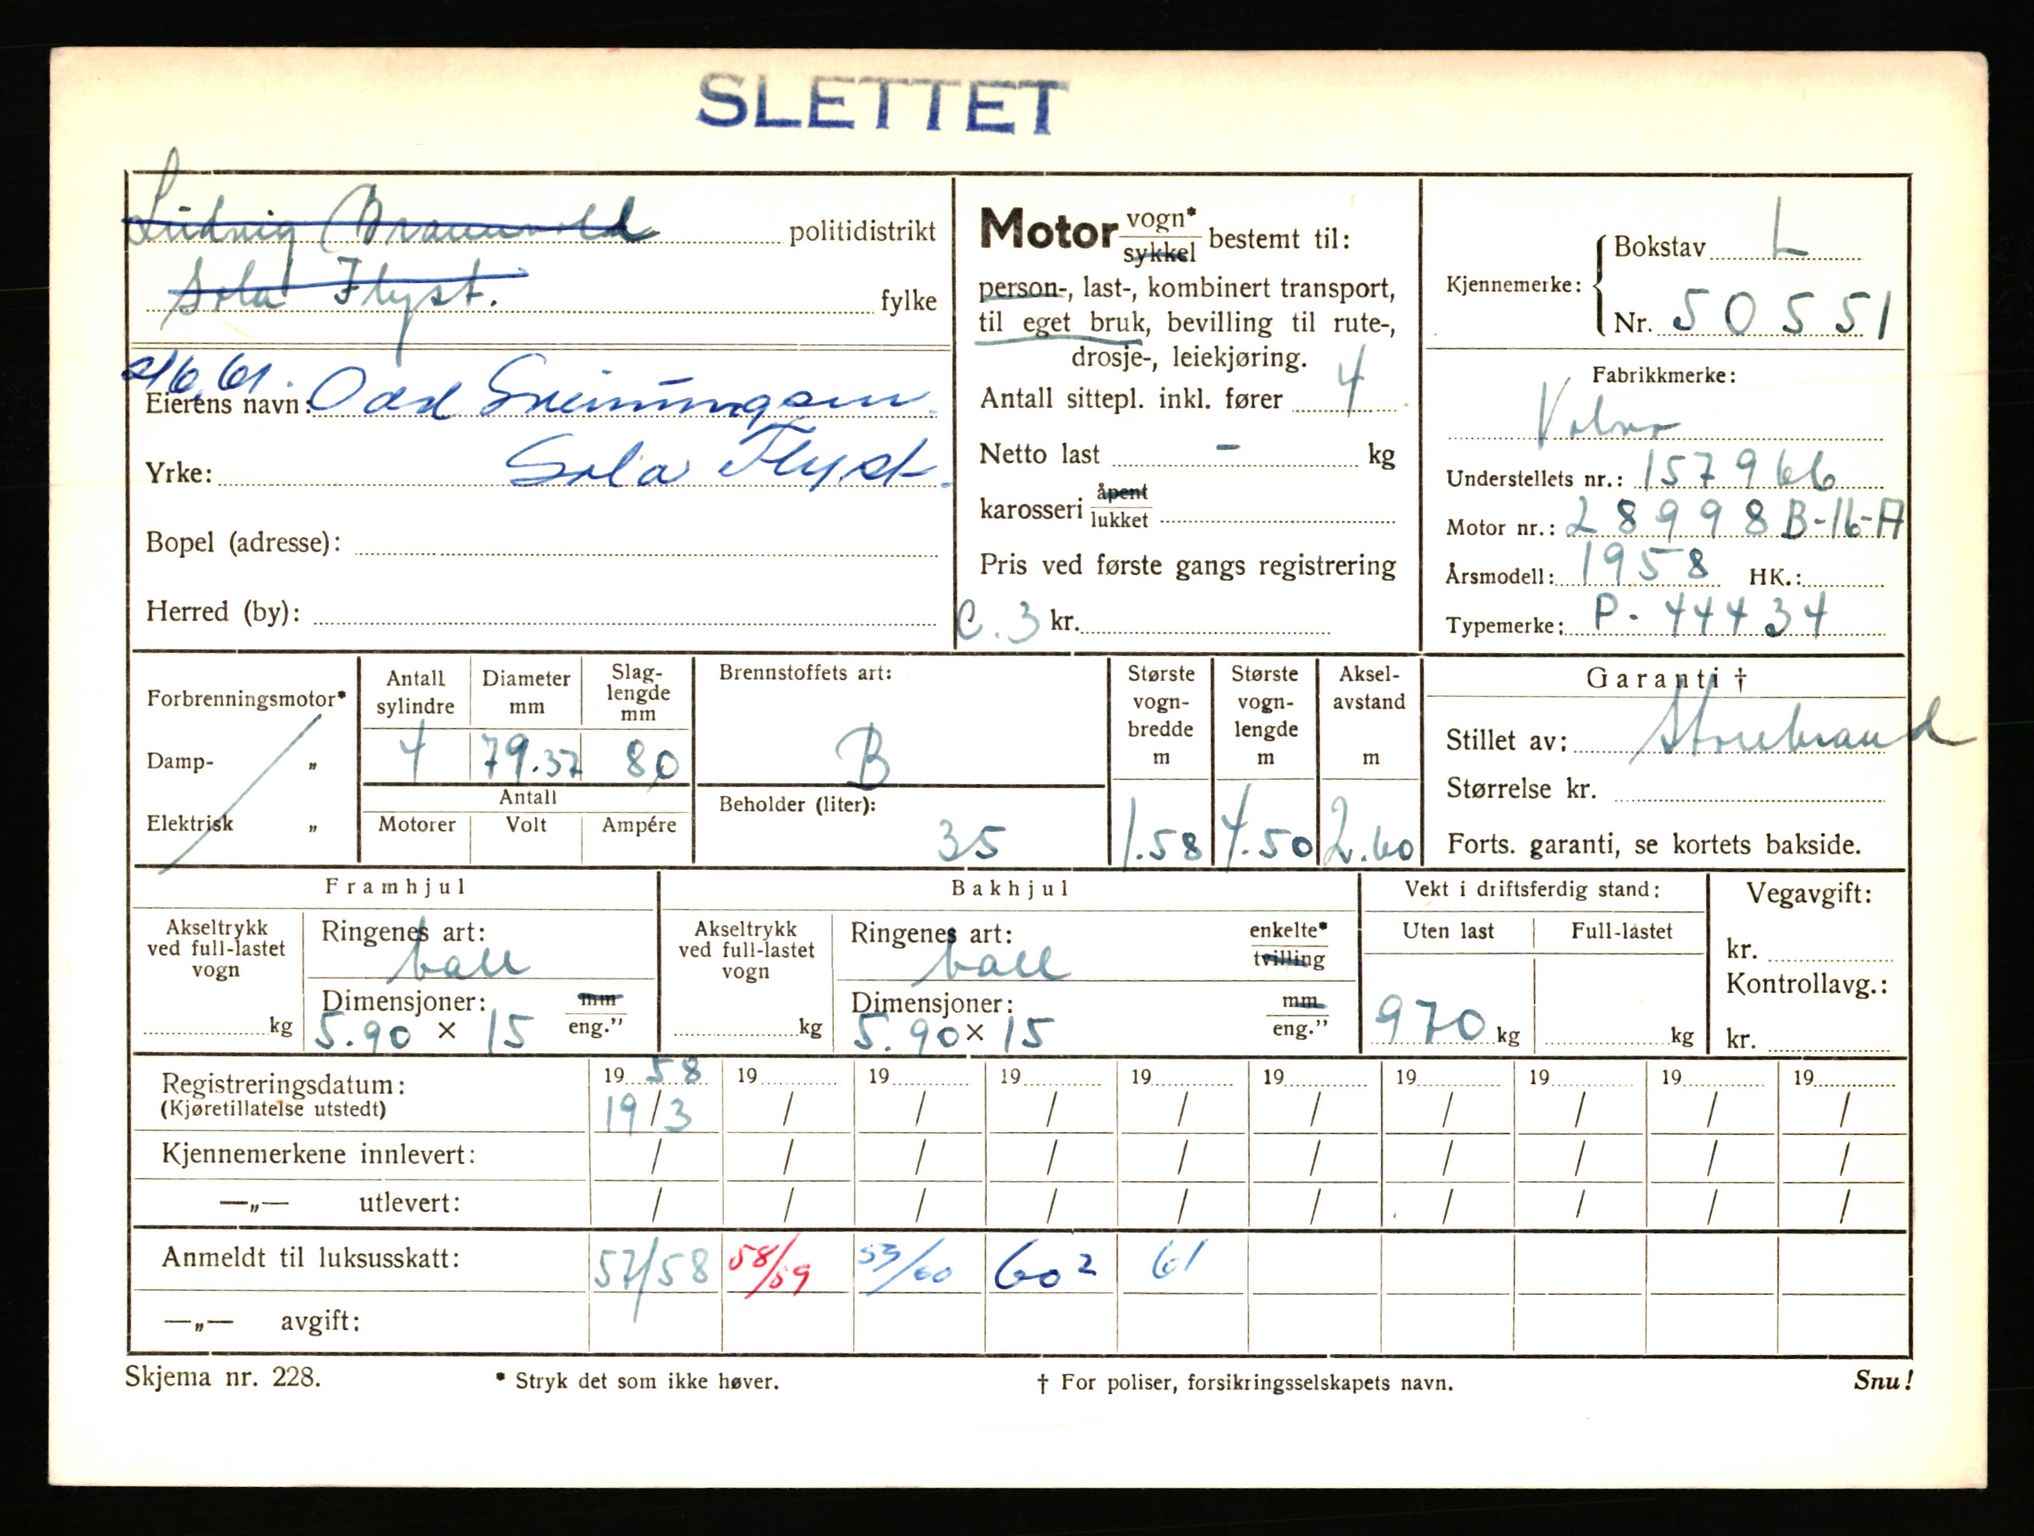 SLETTET
Ludvig politidistrikt
Sola Flyst. fylke
Eierens navn: Odd
Yrke: Sola Flyst.
Bopel (adresse):
Herred (by):
Motor vogn* sykkel bestemt til:
person-, last-, kombinert transport,
til eget bruk, bevilling til rute-,
drosje-, leiekjøring.
Antall sittepl. inkl. fører 4
Netto last - kg
karosseri åpent lukket
Pris ved første gangs registrering
C. 3 kr.
Kjennemerke: Bokstav L
Nr. 50551
Fabrikkmerke:
Volvo
Understellets nr.: 157966
Motor nr.: 28998 B-16-A
Årsmodell: 1958 HK.:
Typemerke: P. 44434
Forbrenningsmotor*
Damp- „
Elektrisk „
Antall sylindre Diameter mm Slag-lengde mm
4 79.37 80
Antall
Motorer Volt Ampére
Brennstoffets art:
B
Beholder (liter):
35
Største vogn-bredde m
1.58
Største vogn-lengde m
4.50
Aksel-avstand m
2.60
Garanti †
Stillet av: Storebrand
Størrelse kr.
Forts. garanti, se kortets bakside.
Framhjul
Akseltrykk ved full-lastet vogn
kg
Ringenes art:
ball
Dimensjoner: mm eng.”
5.90 × 15
Bakhjul
Akseltrykk ved full-lastet vogn
kg
Ringenes art: enkelte* tvilling
ball
Dimensjoner: mm eng.”
5.90 × 15
Vekt i driftsferdig stand:
Uten last Full-lastet
970 kg kg
Vegavgift:
kr.
Kontrollavg.:
kr.
Registreringsdatum: 19 58 19 19 19 19 19 19 19 19 19
(Kjøretillatelse utstedt) 19/3 / / / / / / / / /
Kjennemerkene innlevert: / / / / / / / / / /
—„— utlevert: / / / / / / / / / /
Anmeldt til luksusskatt: 57/58 58/59 59/60 60 2 61
—„— avgift:
Skjema nr. 228. * Stryk det som ikke høver. † For poliser, forsikringsselskapets navn. Snu!